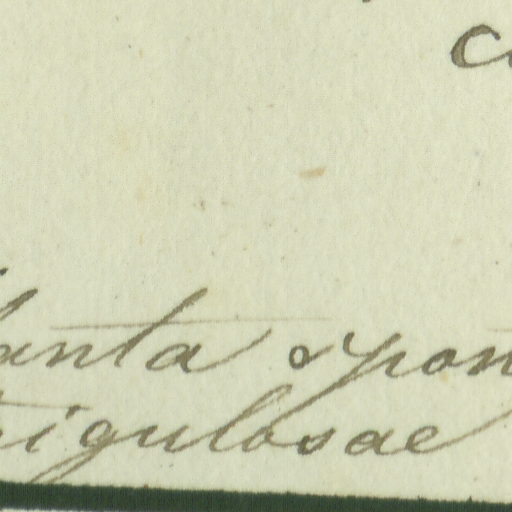 c
lanta spon
rigulosae